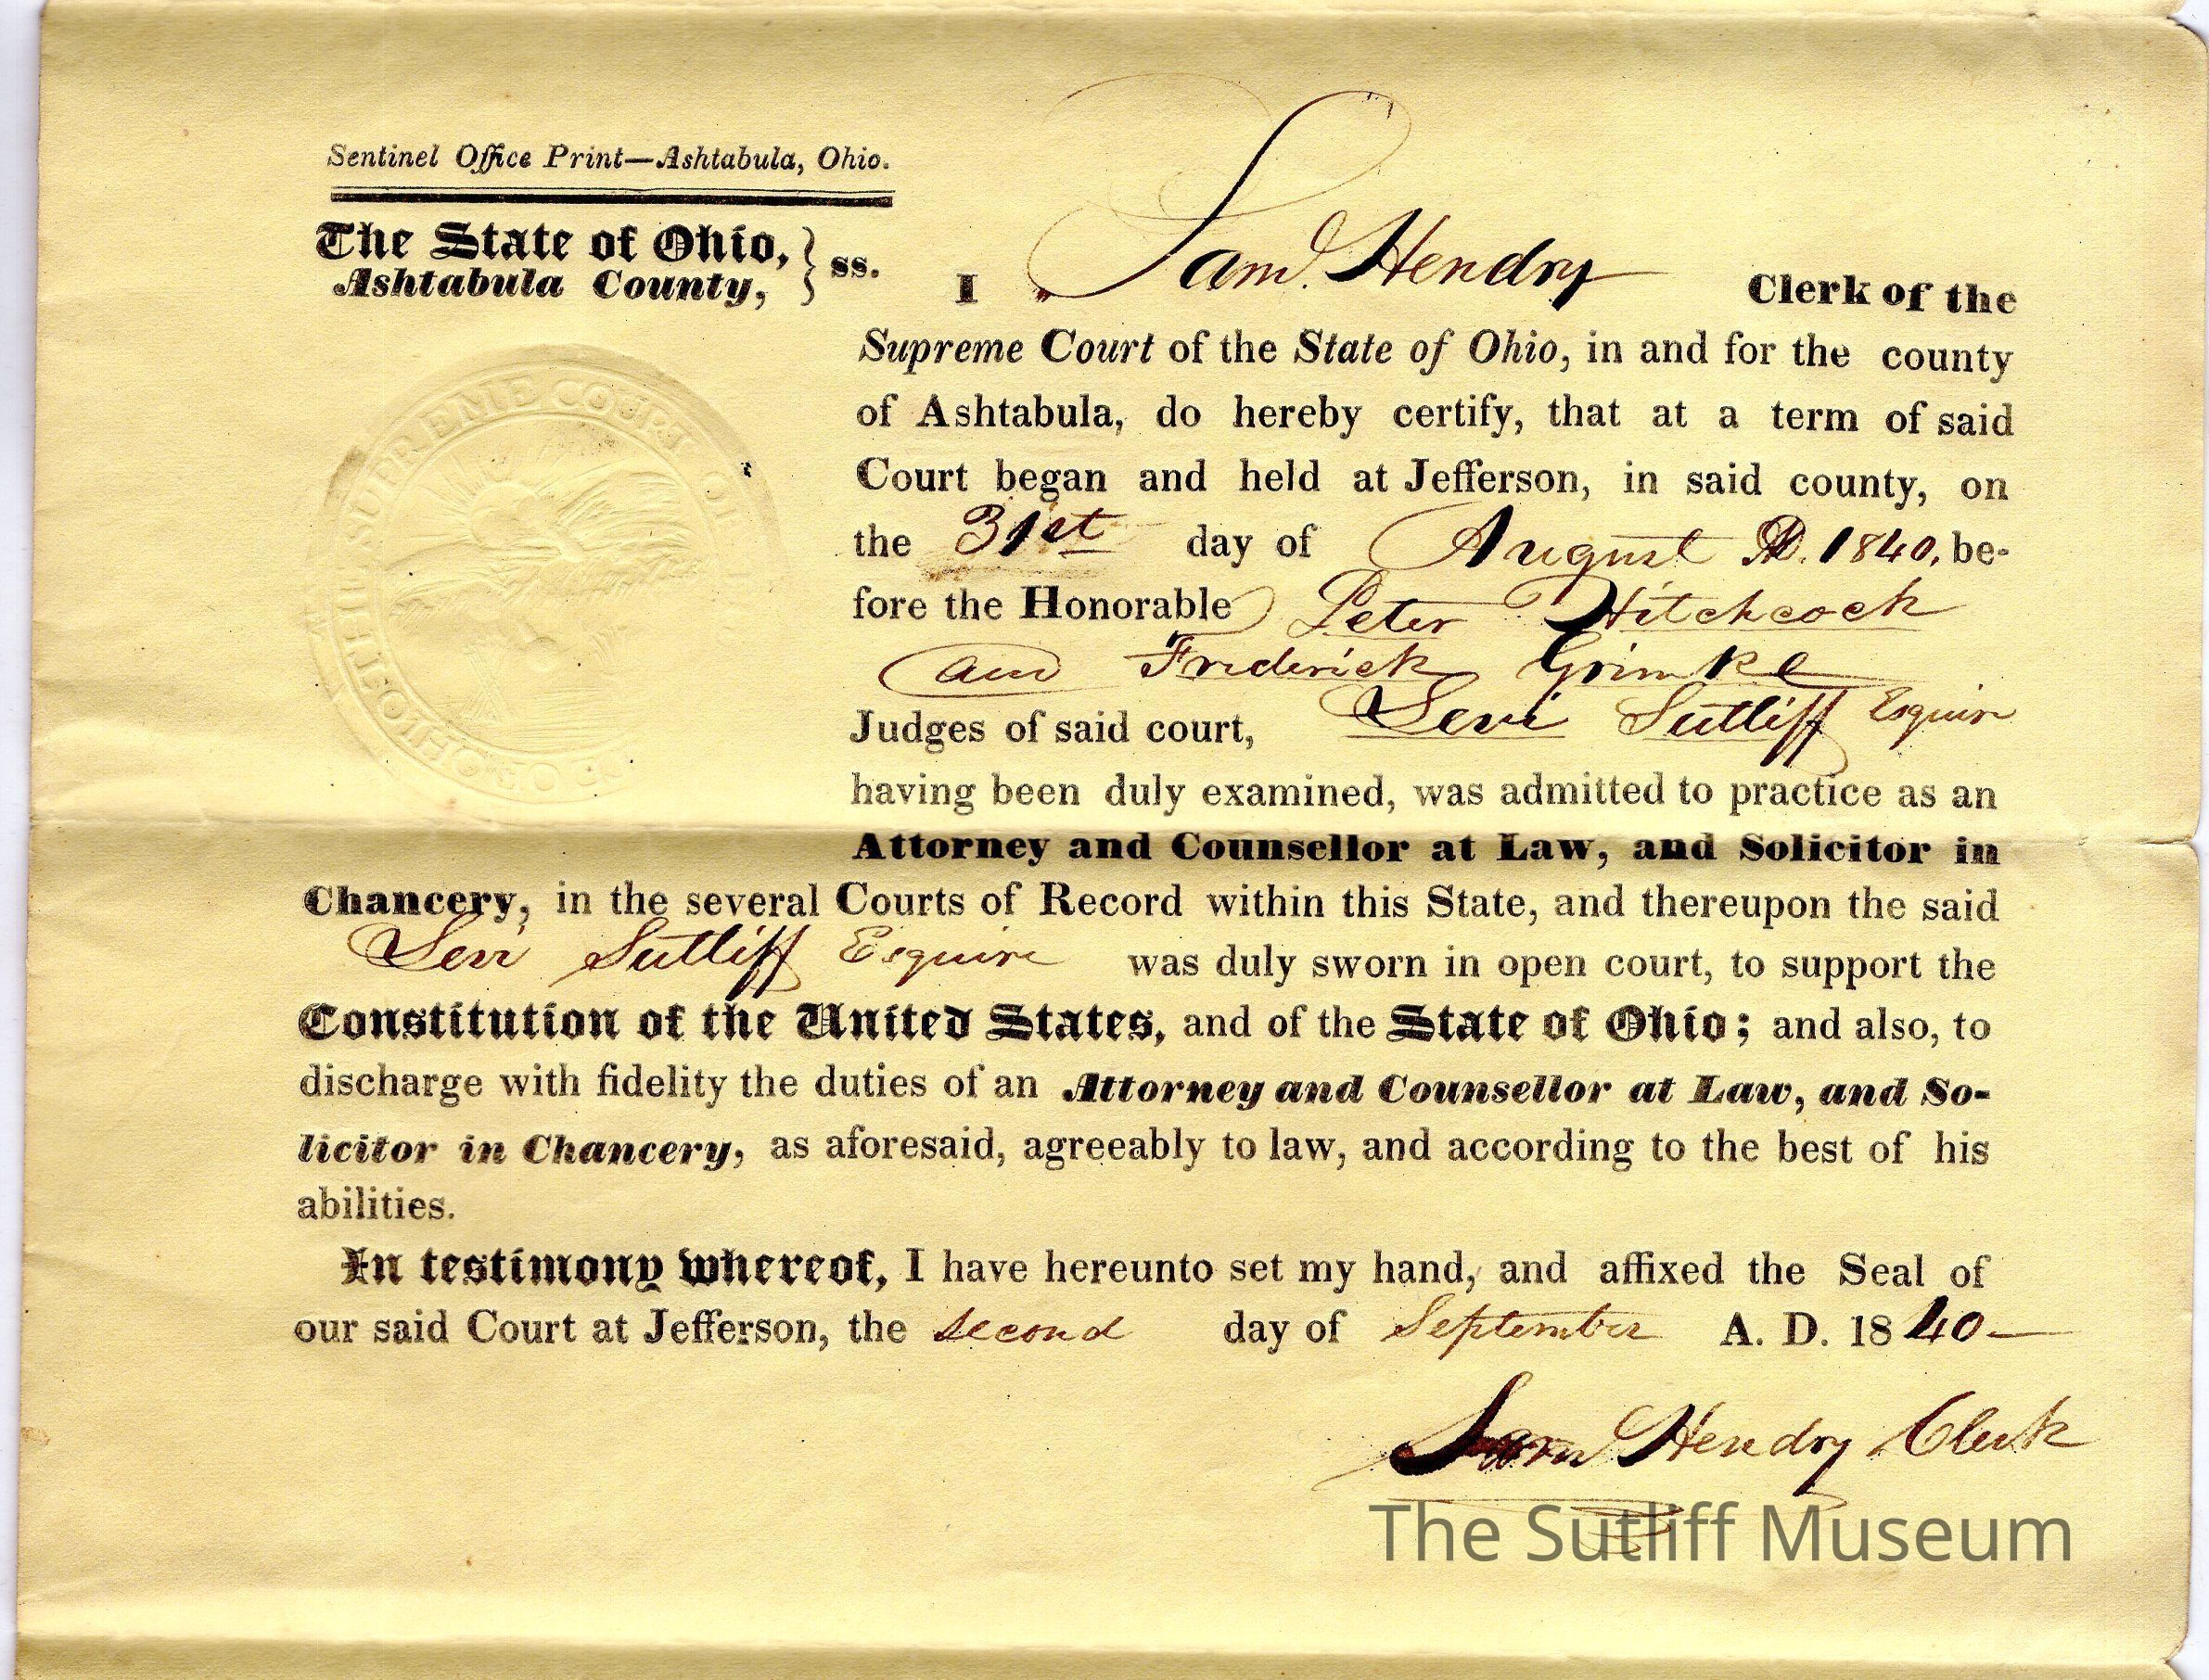 Sentinel Office Print—Ashtabula, Ohio.
The State of Ohio, } ss.
Ashtabula County,
I Saml. Hendry Clerk of the
Supreme Court of the State of Ohio, in and for the county
of Ashtabula, do hereby certify, that at a term of said
Court began and held at Jefferson, in said county, on
the 31st day of August AD. 1840, be-
fore the Honorable Peter Hitchcock
and Frederick Grimke
Judges of said court, Levi Sutliff Esquire
having been duly examined, was admitted to practice as an
Attorney and Counsellor at Law, and Solicitor in
Chancery, in the several Courts of Record within this State, and thereupon the said
Levi Sutliff Esquire was duly sworn in open court, to support the
Constitution of the United States, and of the State of Ohio; and also, to
discharge with fidelity the duties of an Attorney and Counsellor at Law, and So-
licitor in Chancery, as aforesaid, agreeably to law, and according to the best of his
abilities.
In testimony whereof, I have hereunto set my hand, and affixed the Seal of
our said Court at Jefferson, the second day of September A. D. 1840—
Saml Hendry Clerk
The Sutliff Museum
SUPREME COURT OF
OHIO